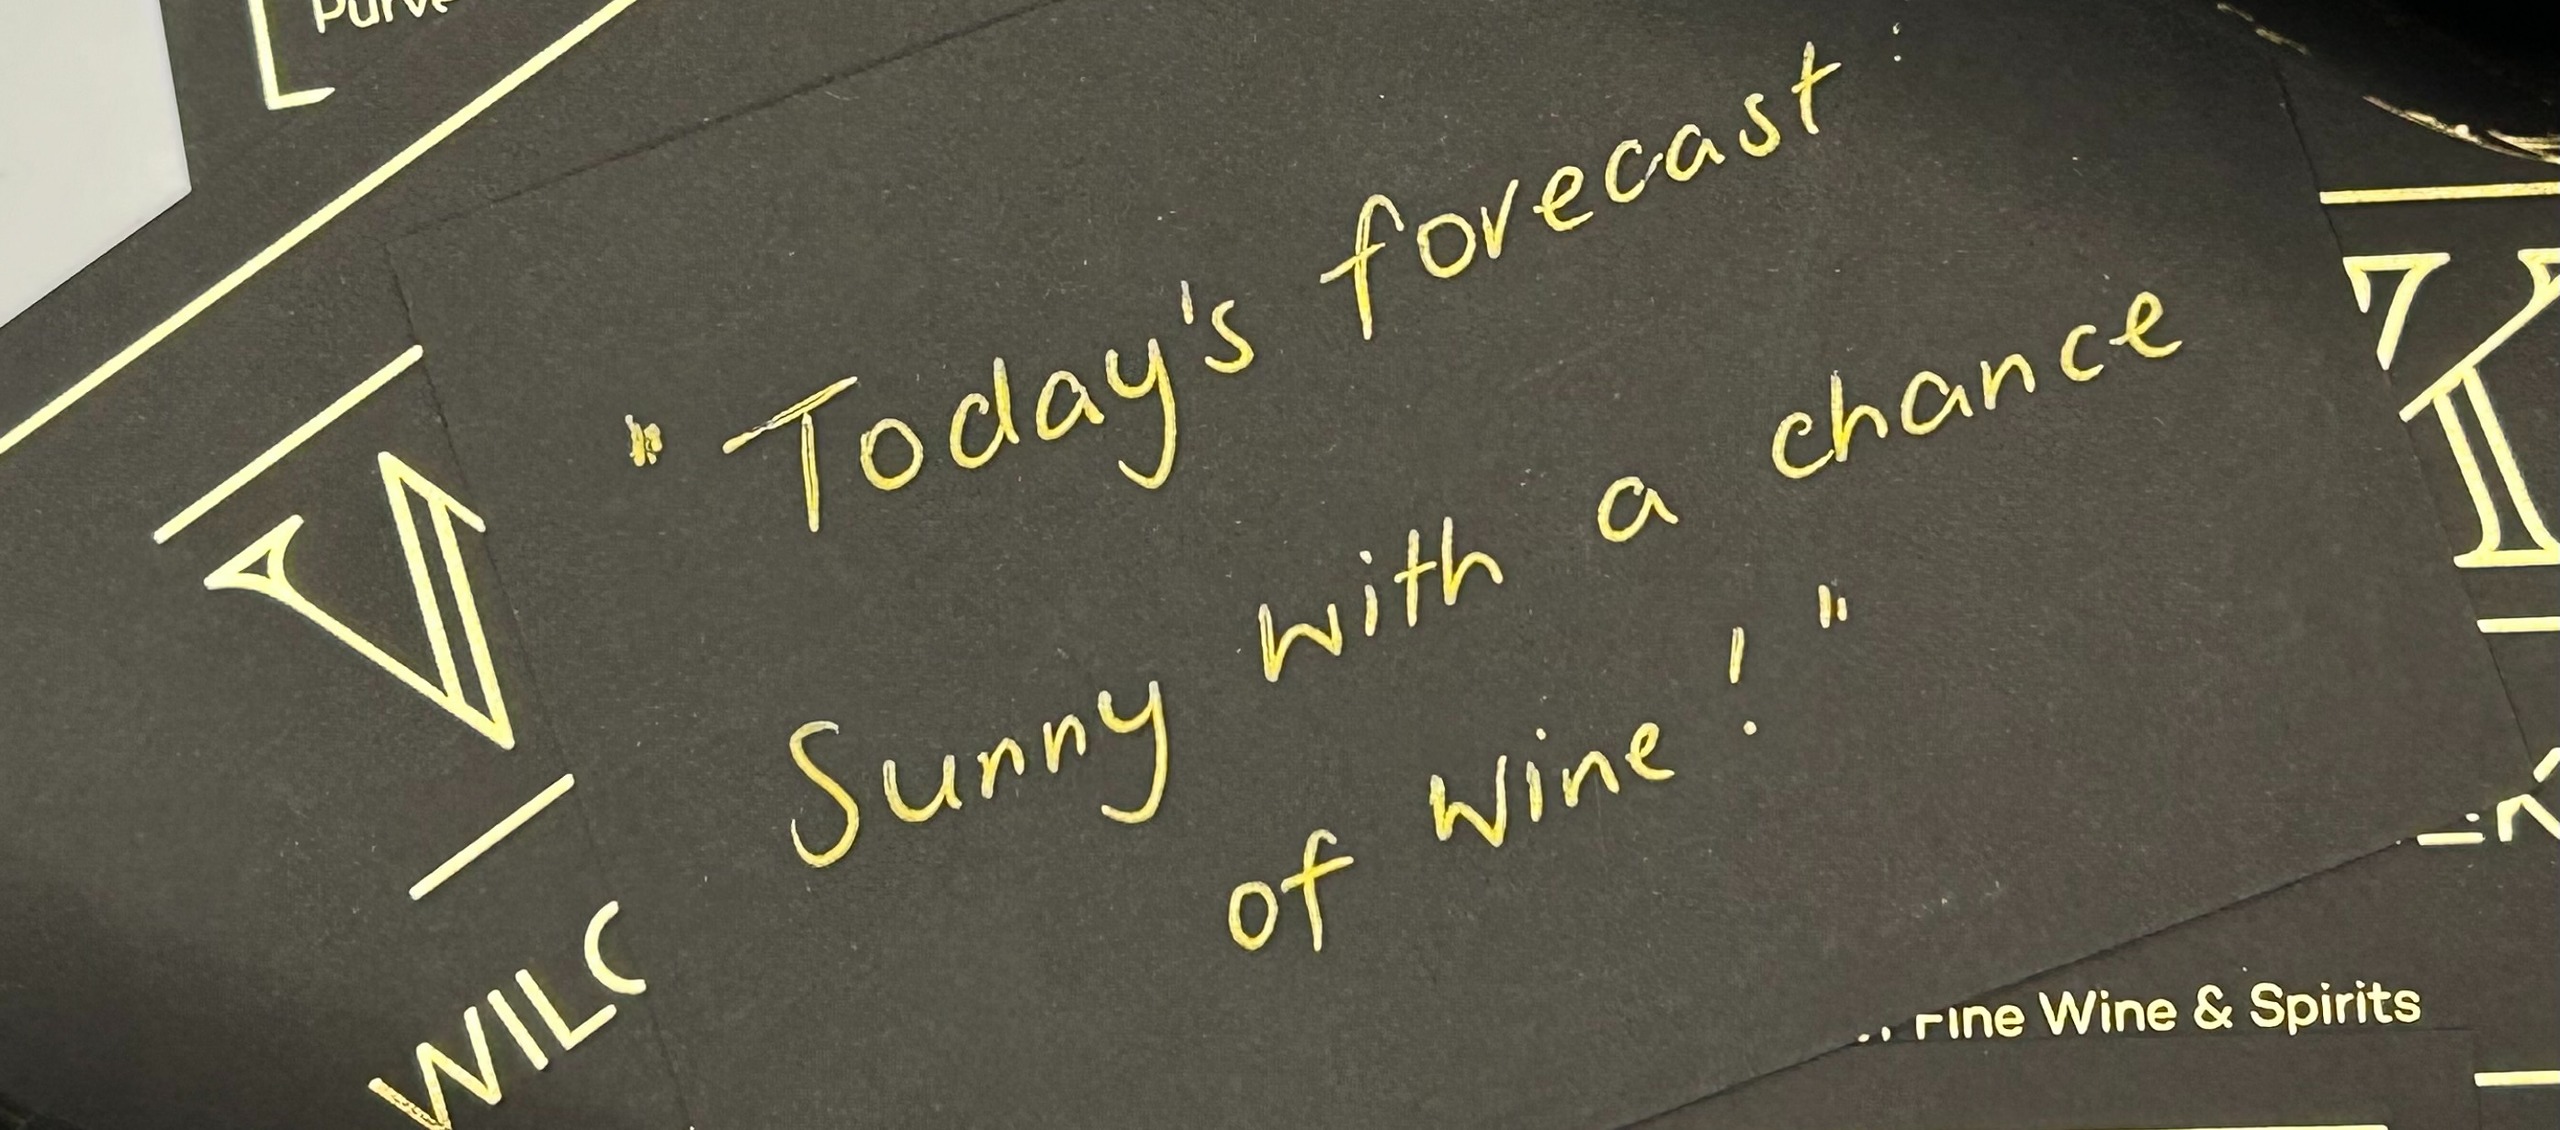 "Today's forecast:
Sunny with a chance
of wine!"
V
Fine Wine & Spirits